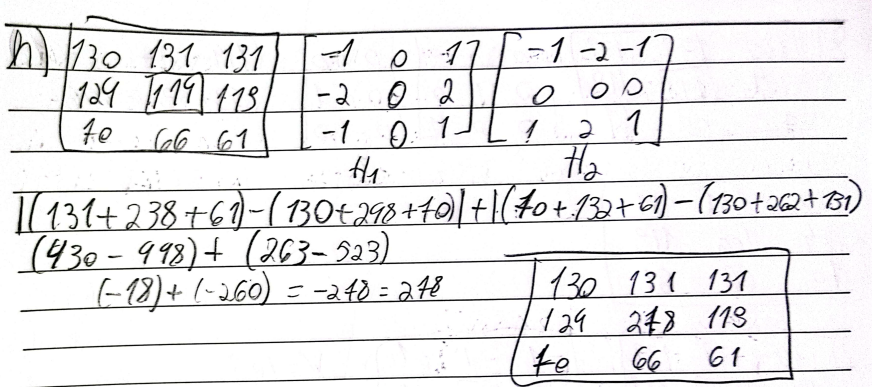 h) 130 131 131 -1 0 1 -1 -2 -1
129 119 119 -2 0 2 0 0 0
70 66 61 -1 0 1 1 2 1
H1 H2
|(131+238+61)-(130+298+70)|+|(70+132+61)-(130+262+131)
(430-998)+(263-523)
(-18)+(-260) = -278 = 278
130 131 131
129 278 119
70 66 61